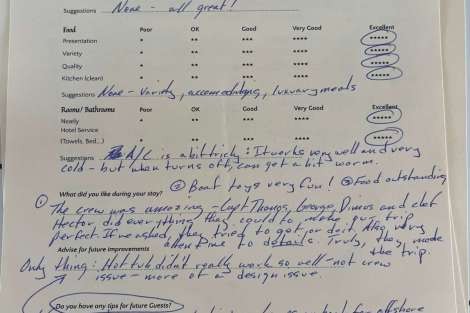 Suggestions None - all great!
Food Poor OK Good Very Good Excellent
Presentation * ** *** **** *****
Variety * ** *** **** *****
Quality * ** *** **** *****
Kitchen (clean) * ** *** **** *****
Suggestions None - Variety, accomodating, luxuary meals
Rooms/Bathrooms Poor OK Good Very Good Excellent
Neatly * ** *** **** *****
Hotel Service
(Towels, Bed...) * ** *** **** *****
Suggestions A/C is a bit tricky: It works very well and very
cold - but when turns off, can get a bit warm.
② Boat toys very fun! ③ Food outstanding
What did you like during your stay?
① The crew was amazing - Capt Thanos, George, Dimos and chef
Hector did everything that could to make our trip
perfect. If we asked, they tried to get or do it. Also, very
attentive to details. Truly, they made
Advise for future improvements the trip.
Only thing: Hot tub didn't really work so well - not crew
issue - more of a design issue.
Do you have any tips for future Guests?